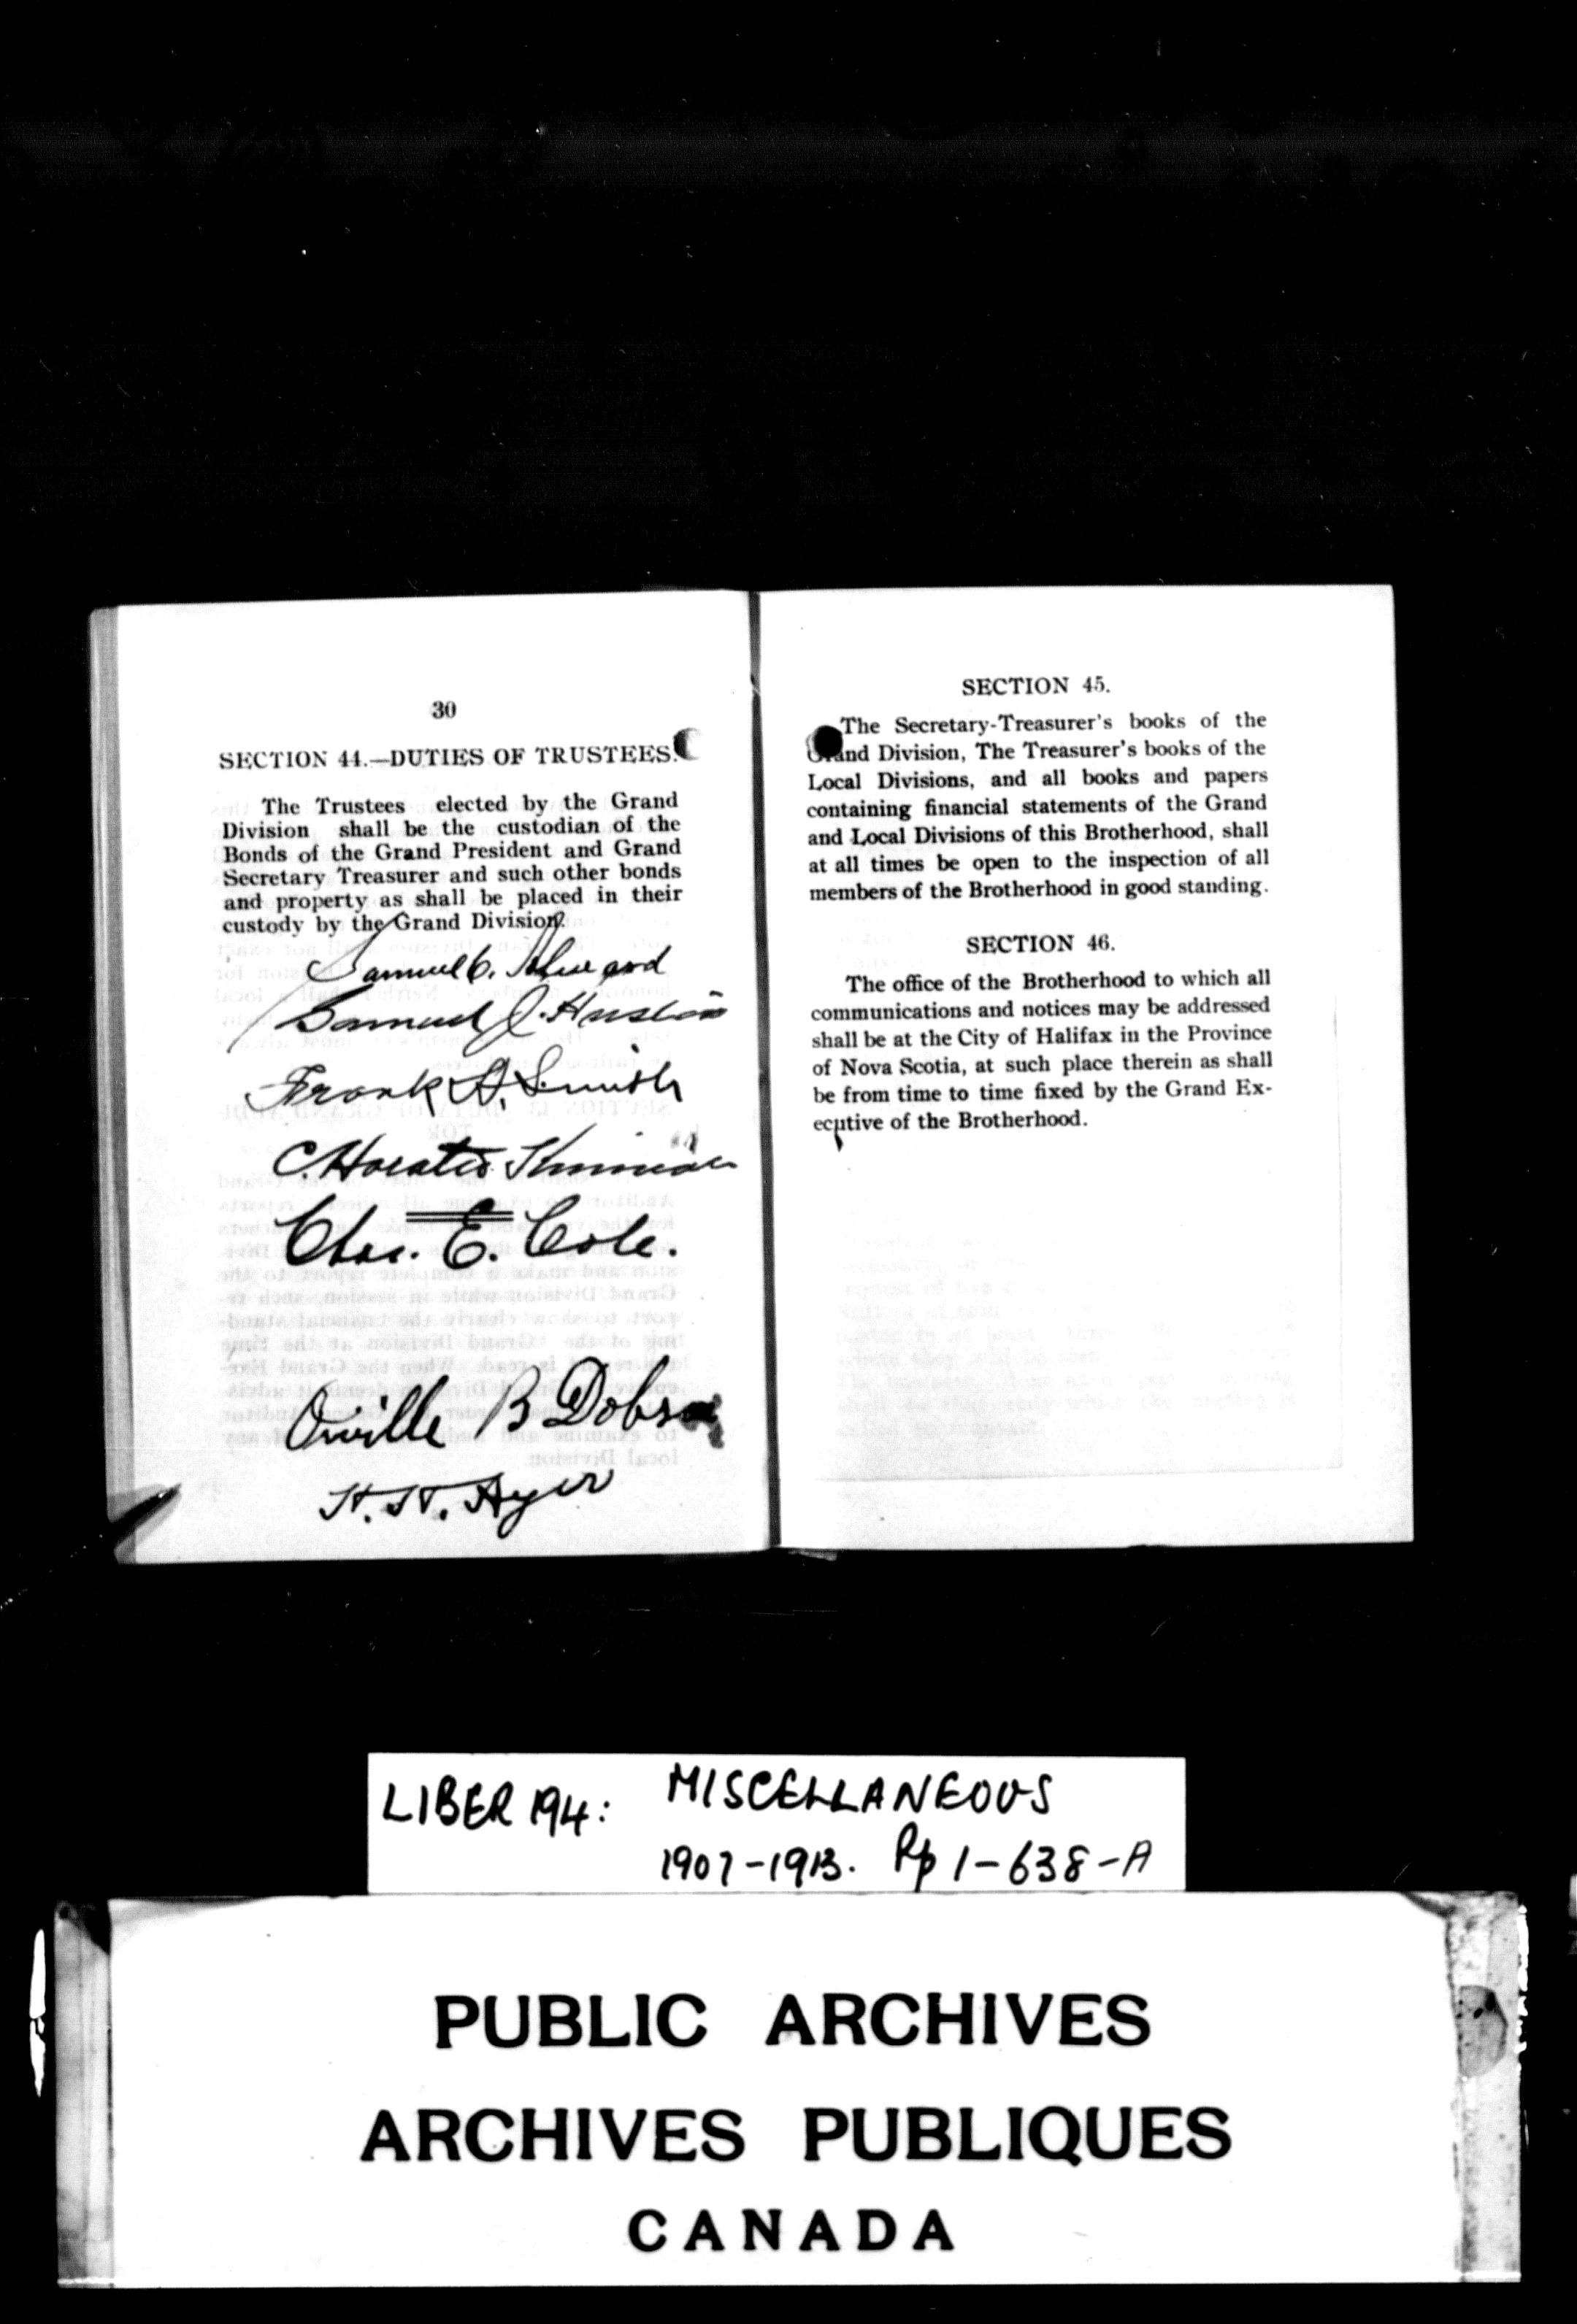 30
SECTION 44.—DUTIES OF TRUSTEES.
The Trustees elected by the Grand
Division shall be the custodian of the
Bonds of the Grand President and Grand
Secretary Treasurer and such other bonds
and property as shall be placed in their
custody by the Grand Division.
Samuel C.
Samuel J.
Frank A. Smith
C. Horatio
Chas. E. Cole.
Orville B Dobson
H. H. Ayer
SECTION 45.
The Secretary-Treasurer's books of the
Grand Division, The Treasurer's books of the
Local Divisions, and all books and papers
containing financial statements of the Grand
and Local Divisions of this Brotherhood, shall
at all times be open to the inspection of all
members of the Brotherhood in good standing.
SECTION 46.
The office of the Brotherhood to which all
communications and notices may be addressed
shall be at the City of Halifax in the Province
of Nova Scotia, at such place therein as shall
be from time to time fixed by the Grand Ex-
ecutive of the Brotherhood.
LIBER 194: MISCELLANEOUS
1907-1913. Pp 1-638-A
PUBLIC ARCHIVES
ARCHIVES PUBLIQUES
CANADA